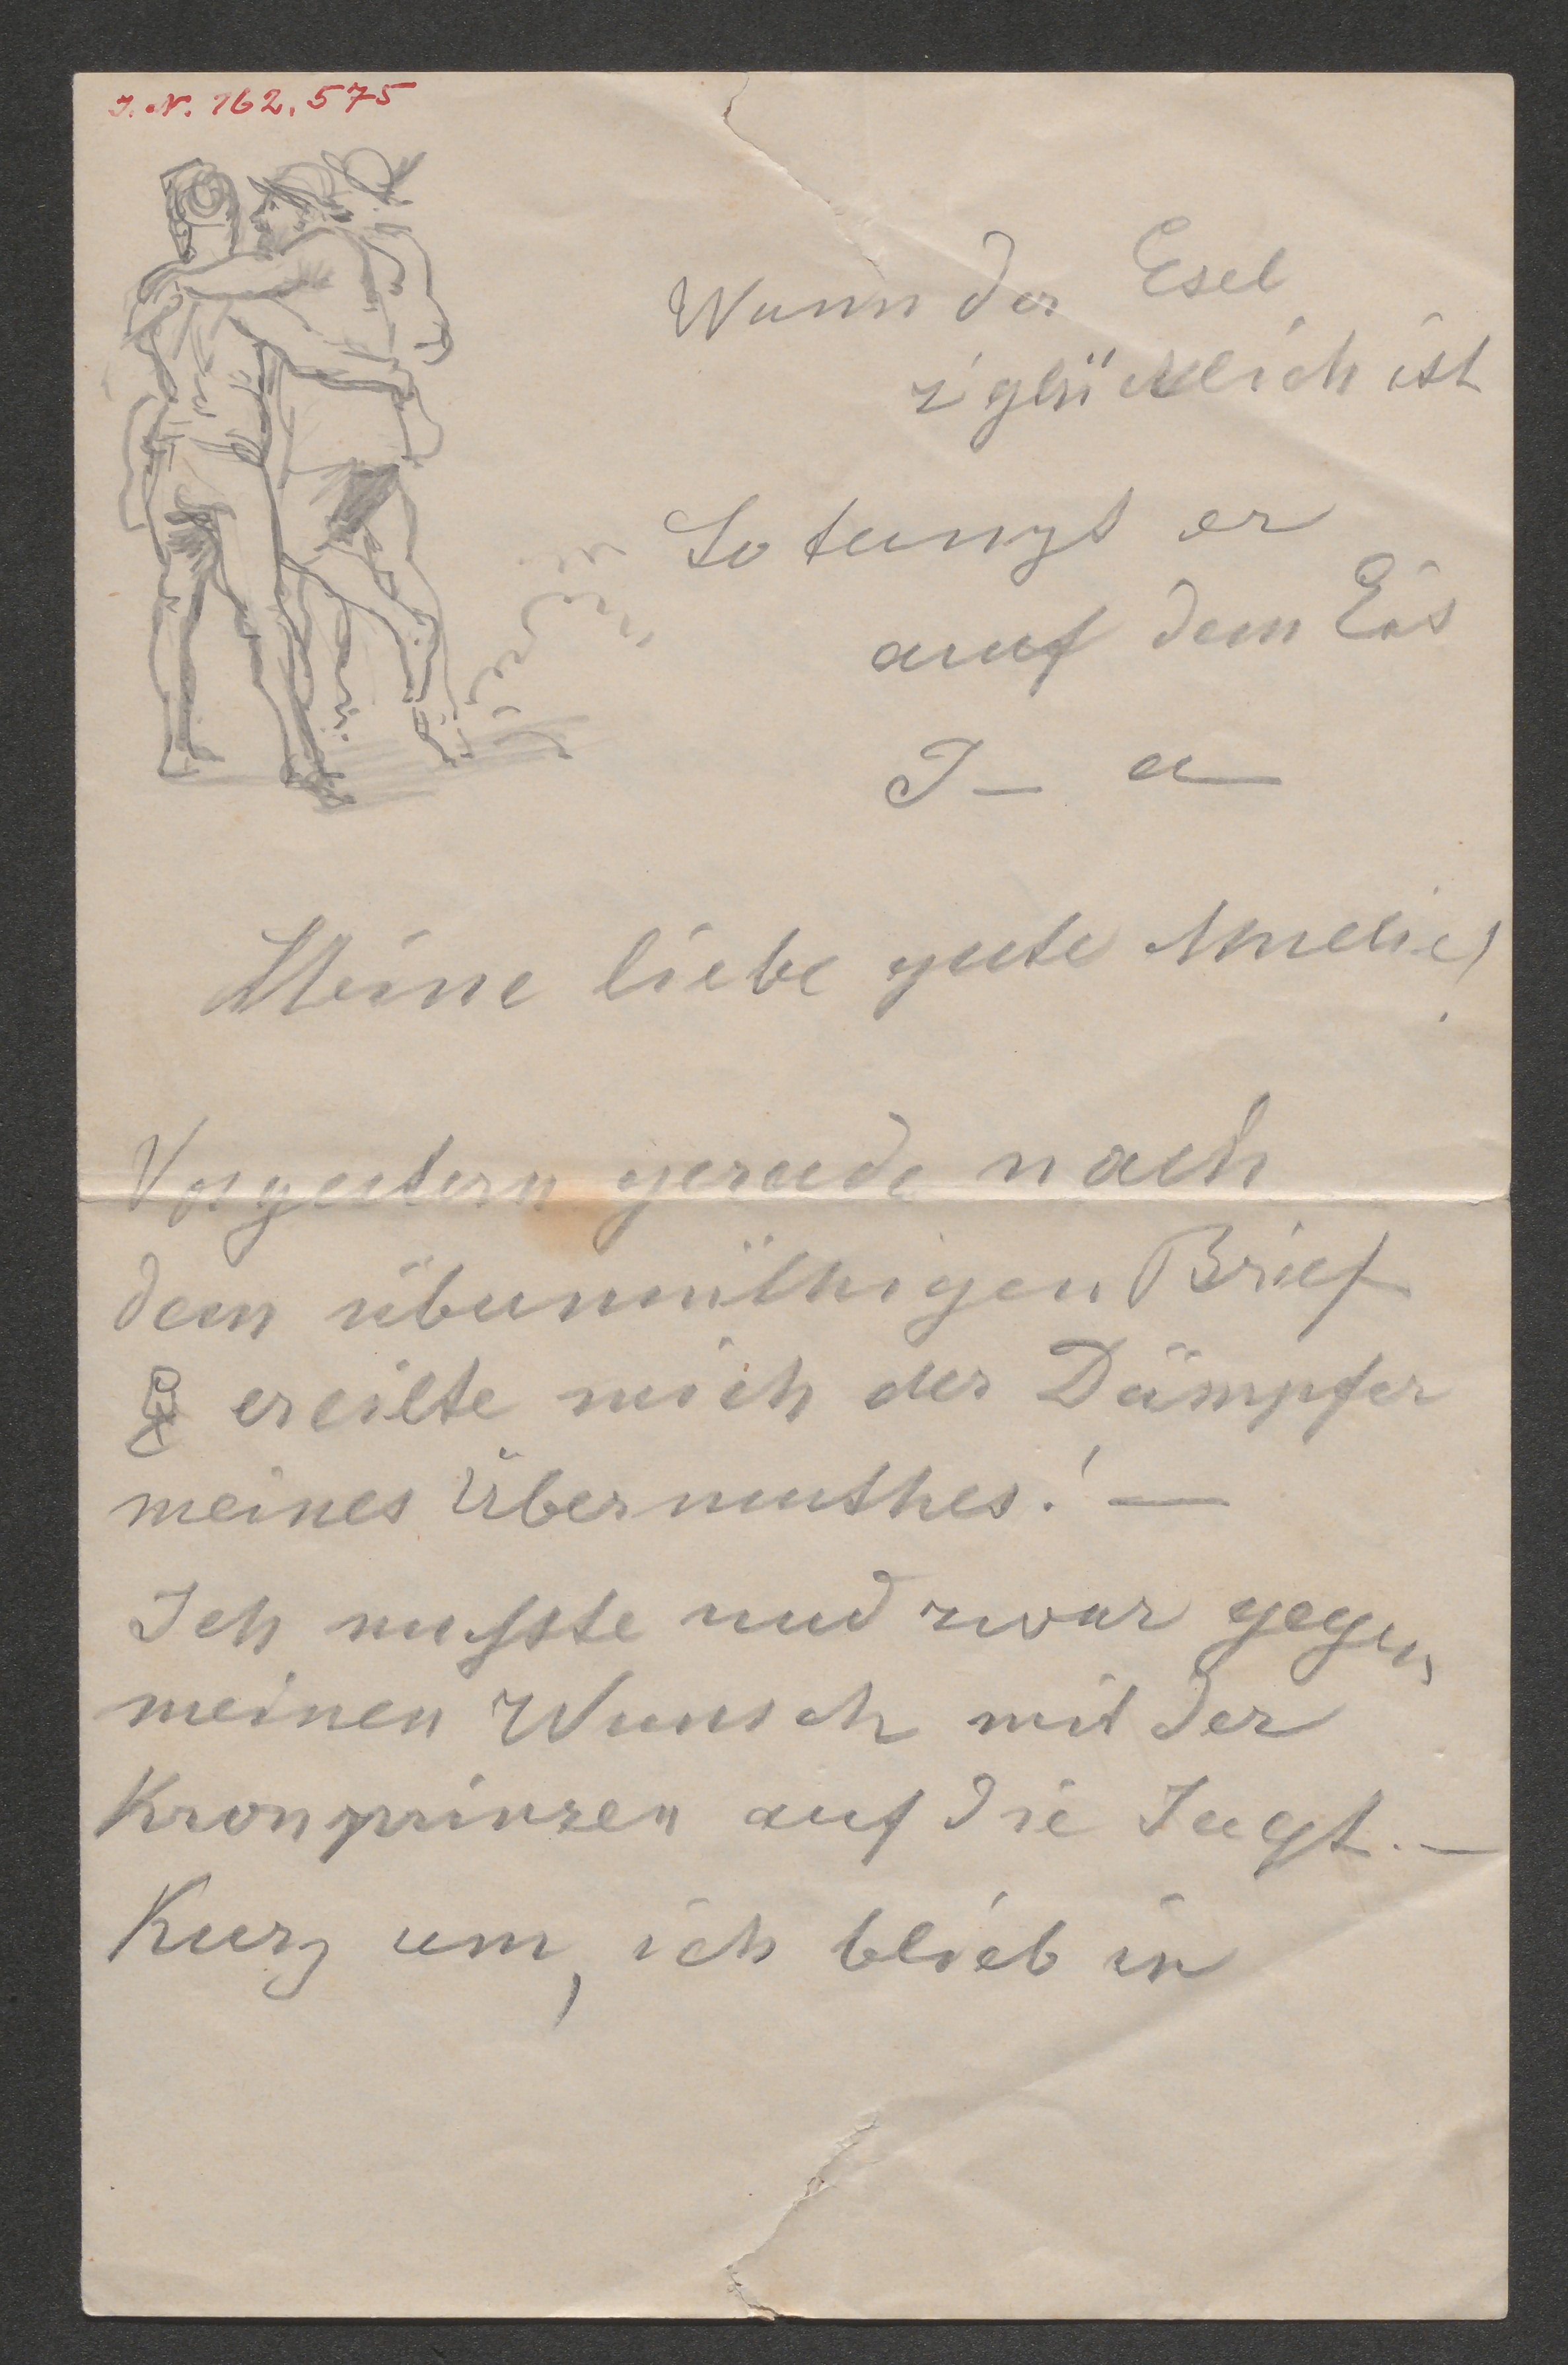 J.N. 162.575
Wann der Esel
z'glücklich ist
So tanzt er
auf dem Eis
I – a –
Meine liebe gute Amelie!
Vorgestern gerade nach
dem übermüthigen Brief
ereilte mich der Dämpfer
meines Übermuthes! —
Ich mußste und zwar gegen
meinen Wunsch mit der
Kronprinzen auf die Jagt. —
Kurz um, ich blieb in